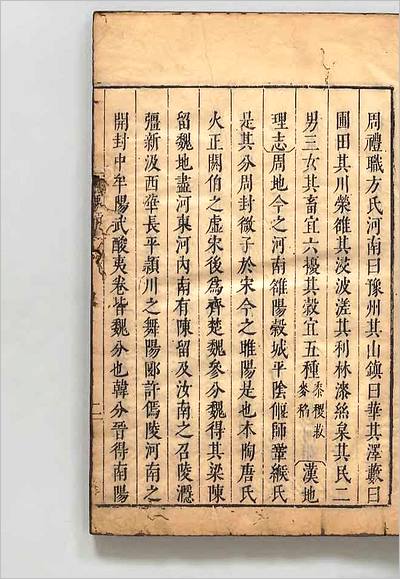 周禮職方氏河南曰豫州其山鎮曰華其澤藪曰
圃田其川滎雒其浸波溠其利林漆絲枲其民二
男三女其畜宜六擾其穀宜五種黍稷菽麥稻漢地
理志周地今之河南雒陽穀城平陰偃師鞏緱氏
是其分周封微子於宋今之睢陽是也本陶唐氏
火正閼伯之虛宋後爲齊楚魏參分魏得其梁陳
留魏地盡河東河內南有陳留及汝南之召陵㶏
彊新汲西華長平潁川之舞陽郾許傿陵河南之
開封中牟陽武酸夷卷皆魏分也韓分晉得南陽
二